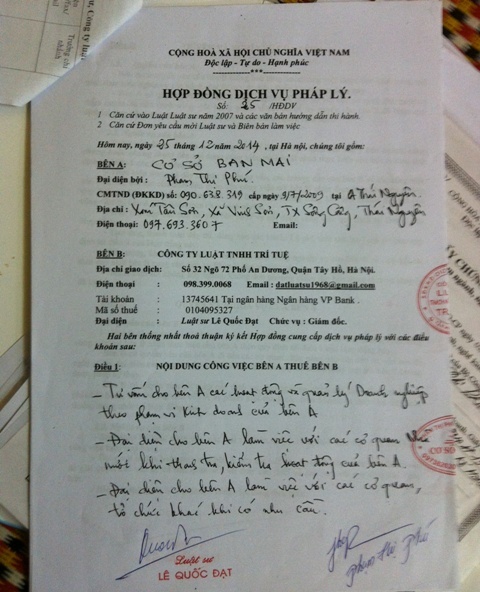 CỘNG HOÀ XÃ HỘI CHỦ NGHĨA VIỆT NAM
Độc lập - Tự do - Hạnh phúc
-------------***-------------
HỢP ĐỒNG DỊCH VỤ PHÁP LÝ.
Số: 25 /HĐDV
1 Căn cứ vào Luật Luật sư năm 2007 và các văn bản hướng dẫn thi hành.
2 Căn cứ Đơn yêu cầu mời Luật sư và Biên bản làm việc
Hôm nay, ngày 25 tháng 12 năm 2014, tại Hà nội, chúng tôi gồm:
BÊN A: CƠ SỞ BAN MAI
Đại diện bởi: Phạm Thị Phú
CMTND (ĐKKD) số: 090.638.319 cấp ngày 9/7/2009 tại CA Thái Nguyên.
Địa chỉ: Xóm Tân Sơn, Xã Vinh Sơn, TX Sông Công, Thái Nguyên
Điện thoại: 097.693.3607 Email:
BÊN B: CÔNG TY LUẬT TNHH TRÍ TUỆ
Địa chỉ giao dịch: Số 32 Ngõ 72 Phố An Dương, Quận Tây Hồ, Hà Nội.
Điện thoại : 098.399.0068 Email : datluatsu1968@gmail.com
Tài khoản : 13745641 Tại ngân hàng Ngân hàng VP Bank .
Mã số thuế : 0104095327
Đại diện : Luật sư Lê Quốc Đạt Chức vụ : Giám đốc.
Hai bên thống nhất thoả thuận ký kết Hợp đồng cung cấp dịch vụ pháp lý với các điều
khoản sau:
Điều 1: NỘI DUNG CÔNG VIỆC BÊN A THUÊ BÊN B
- Tư vấn cho bên A các hoạt động và quản lý Doanh nghiệp
theo phạm vi kinh doanh của bên A
- Đại diện cho bên A làm việc với các cơ quan nhà
nước khi thanh tra, kiểm tra hoạt động của bên A.
- Đại diện cho bên A làm việc với các cơ quan,
tổ chức khác khi có nhu cầu.
Luật sư
LÊ QUỐC ĐẠT
Phạm Thị Phú
CƠ SỞ